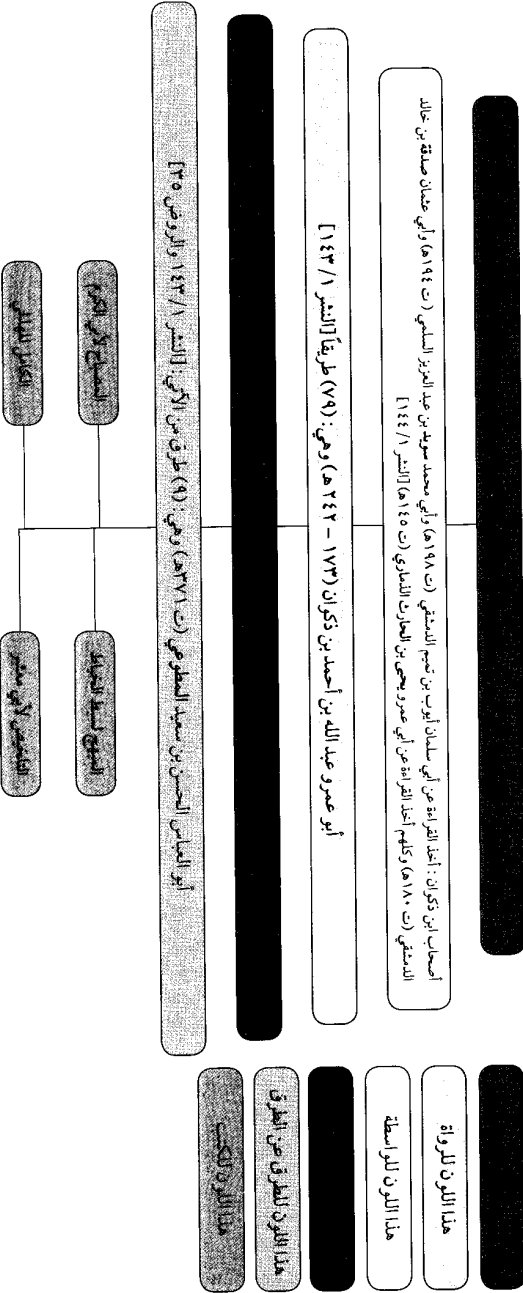 أصحاب ابن ذكوان : أخذ القراءة عن أبي سلمان أيوب بن تميم الدمشقي (ت ١٩٨هـ) وأبي محمد سويد بن عبد العزيز السلمي (ت ١٩٤هـ) وأبي عثمان صدقة بن خالد
الدمشقي (ت ١٨٠هـ) وكلهم أخذ القراءة عن أبي عمرو يحيى بن الحارث الذماري (ت ١٤٥هـ) [النشر ١/ ١٤٤]
أبو عمرو عبد الله بن أحمد بن ذكوان (١٧٣ – ٢٤٢ هـ) وهي: (٧٩) طريقاً [النشر ١/ ١٤٣]
أبو العباس الحسن بن سعيد المطوعي (ت ٣٧١هـ) وهي: (٩) طرق من الآتي: [النشر ١/ ١٤٣ والروض ٣٥]
المبهج لسبط الخياط
المصباح لأبي الكرم
التلخيص لأبي معشر
الكامل للهذلي
هذا اللون للرواة
هذا اللون للواسطة
هذا اللون للطرق عن الطرق
هذا اللون للكتب